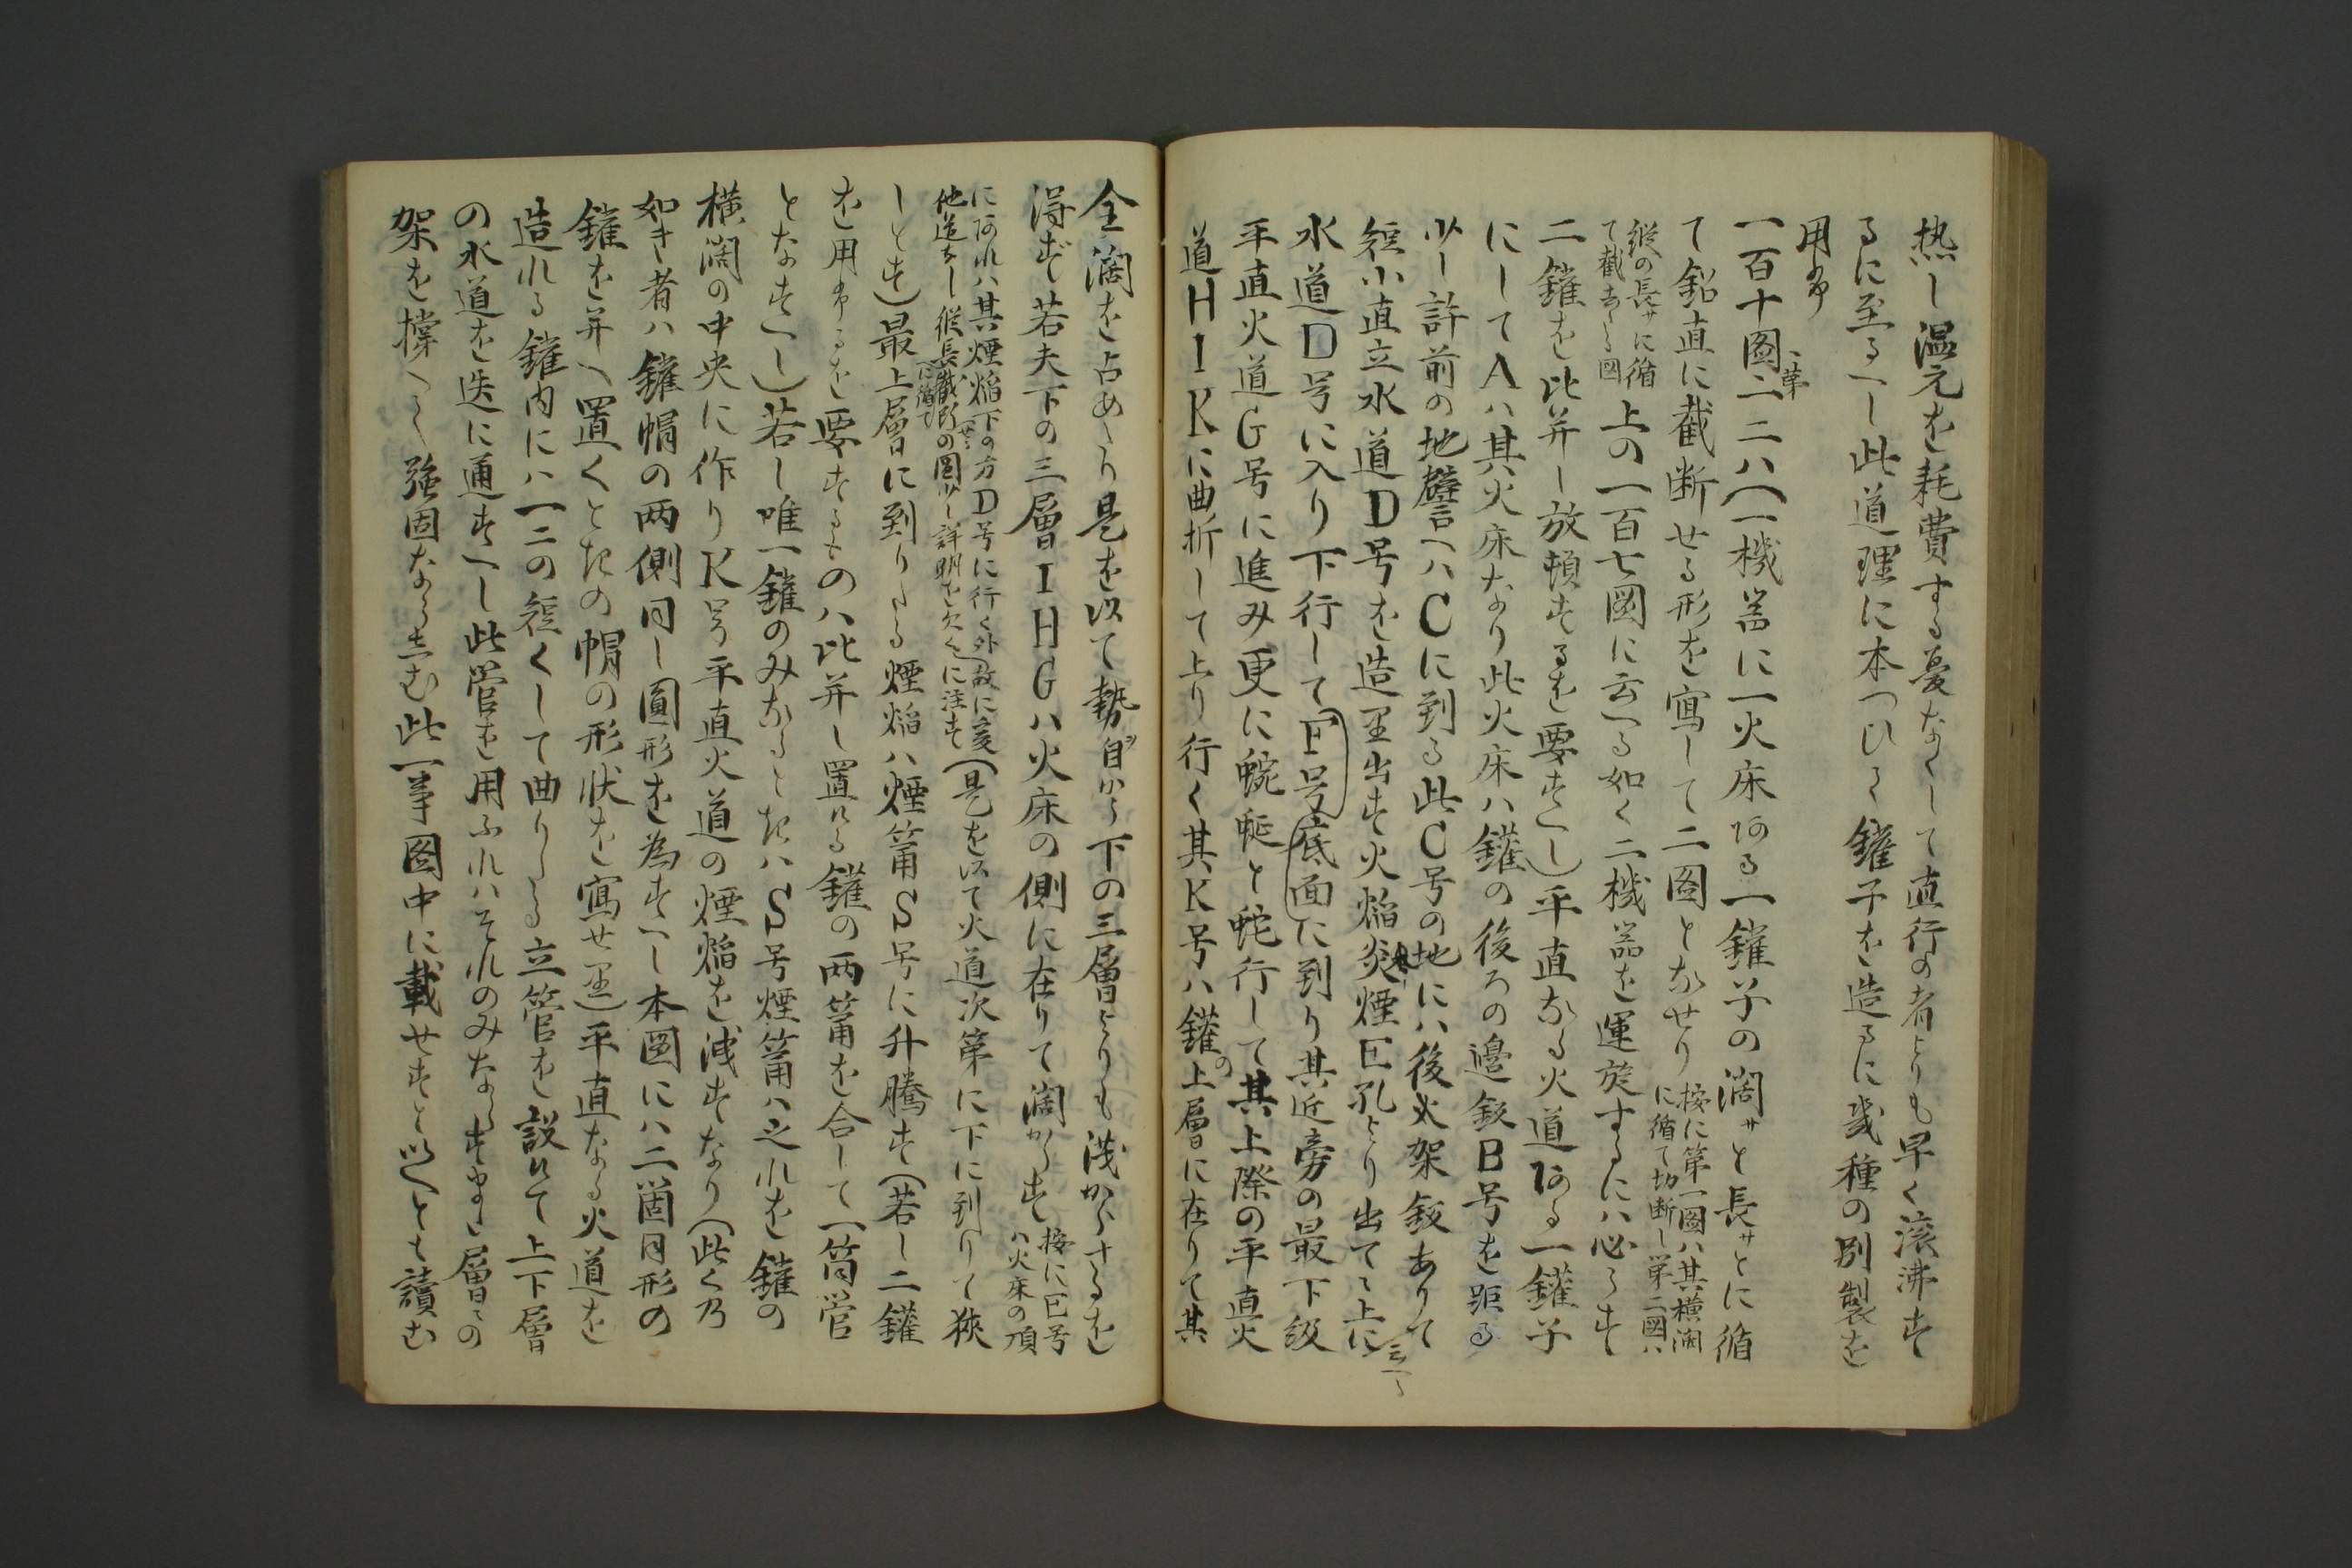 熱し温元を耗費する憂なくして直行の者よりも早く滾沸す
るに至るへし此道理に本つひて鑵子を造るに幾種の別製を
用ゆ
一百十図一二ハ(一機器に一火床ある一鑵子の濶サと長サとに循
て鉛直に截断せる形を寫して二図となせり
按に第一圖ハ其横濶
に循て切断し第二圖ハ
縦の長サに循
て截する図
上の一百七図に云へる如く二機器を運旋するにハ必らす
二鑵を比并し放頓するを要すへし)平直なる火道ある一鑵子
にしてAハ其火床なり此火床ハ鑵の後ろの邉釼B号を距る
少し許前の地礕へハCに到る此C号の地にハ後火架釼ありて
短小直立水道D号を造里出す火焔炎煙E孔より出てゝ上に云へる
水道D号に入り下行してF号底面に到り其近旁の最下級
平直火道G号に進み更に蜿蜒と蛇行して其上際の平直火
道HIKに曲折して上り行く其K号ハ鑵の上層に在りて其
全濶を占めたり是を以て勢ヲ自から下の三層よりも浅からさるを
得ず若夫下の三層IHGハ火床の側に在りて濶からす
按にE号
ハ火床の頂
に阿れハ其煙焔下の方D号に行く外
他道なし縦長に循て截断せるの圖少し詳明を欠く故に爰に注す
(是を以て火道次第に下に到りて狹
しとす)最上層に到りたる煙焔ハ煙筩S号に升騰す(若し二鑵
を用ゆるを要するものハ比并し置ける鑵の両筩を合して一筒管
となすへし)若し唯一鑵のみなるときハS号煙筩ハ之れを鑵の
横濶の中央に作りK号平直火道の煙焔を洩すなり(此く乃
如き者ハ鑵帽の両側同し圓形を為すへし本圖にハ二箇同形の
鑵を并へ置くときの帽の形状を寫せ里)平直なる火道を
造れる鑵内にハ一二の短くして曲りたる立管を設けて上下層
の水道を迭に通すへし此管を用ふれハそれのみならす毎層の
架を撑へて強固ならしむ此一事図中に載せすと以へとも讀む